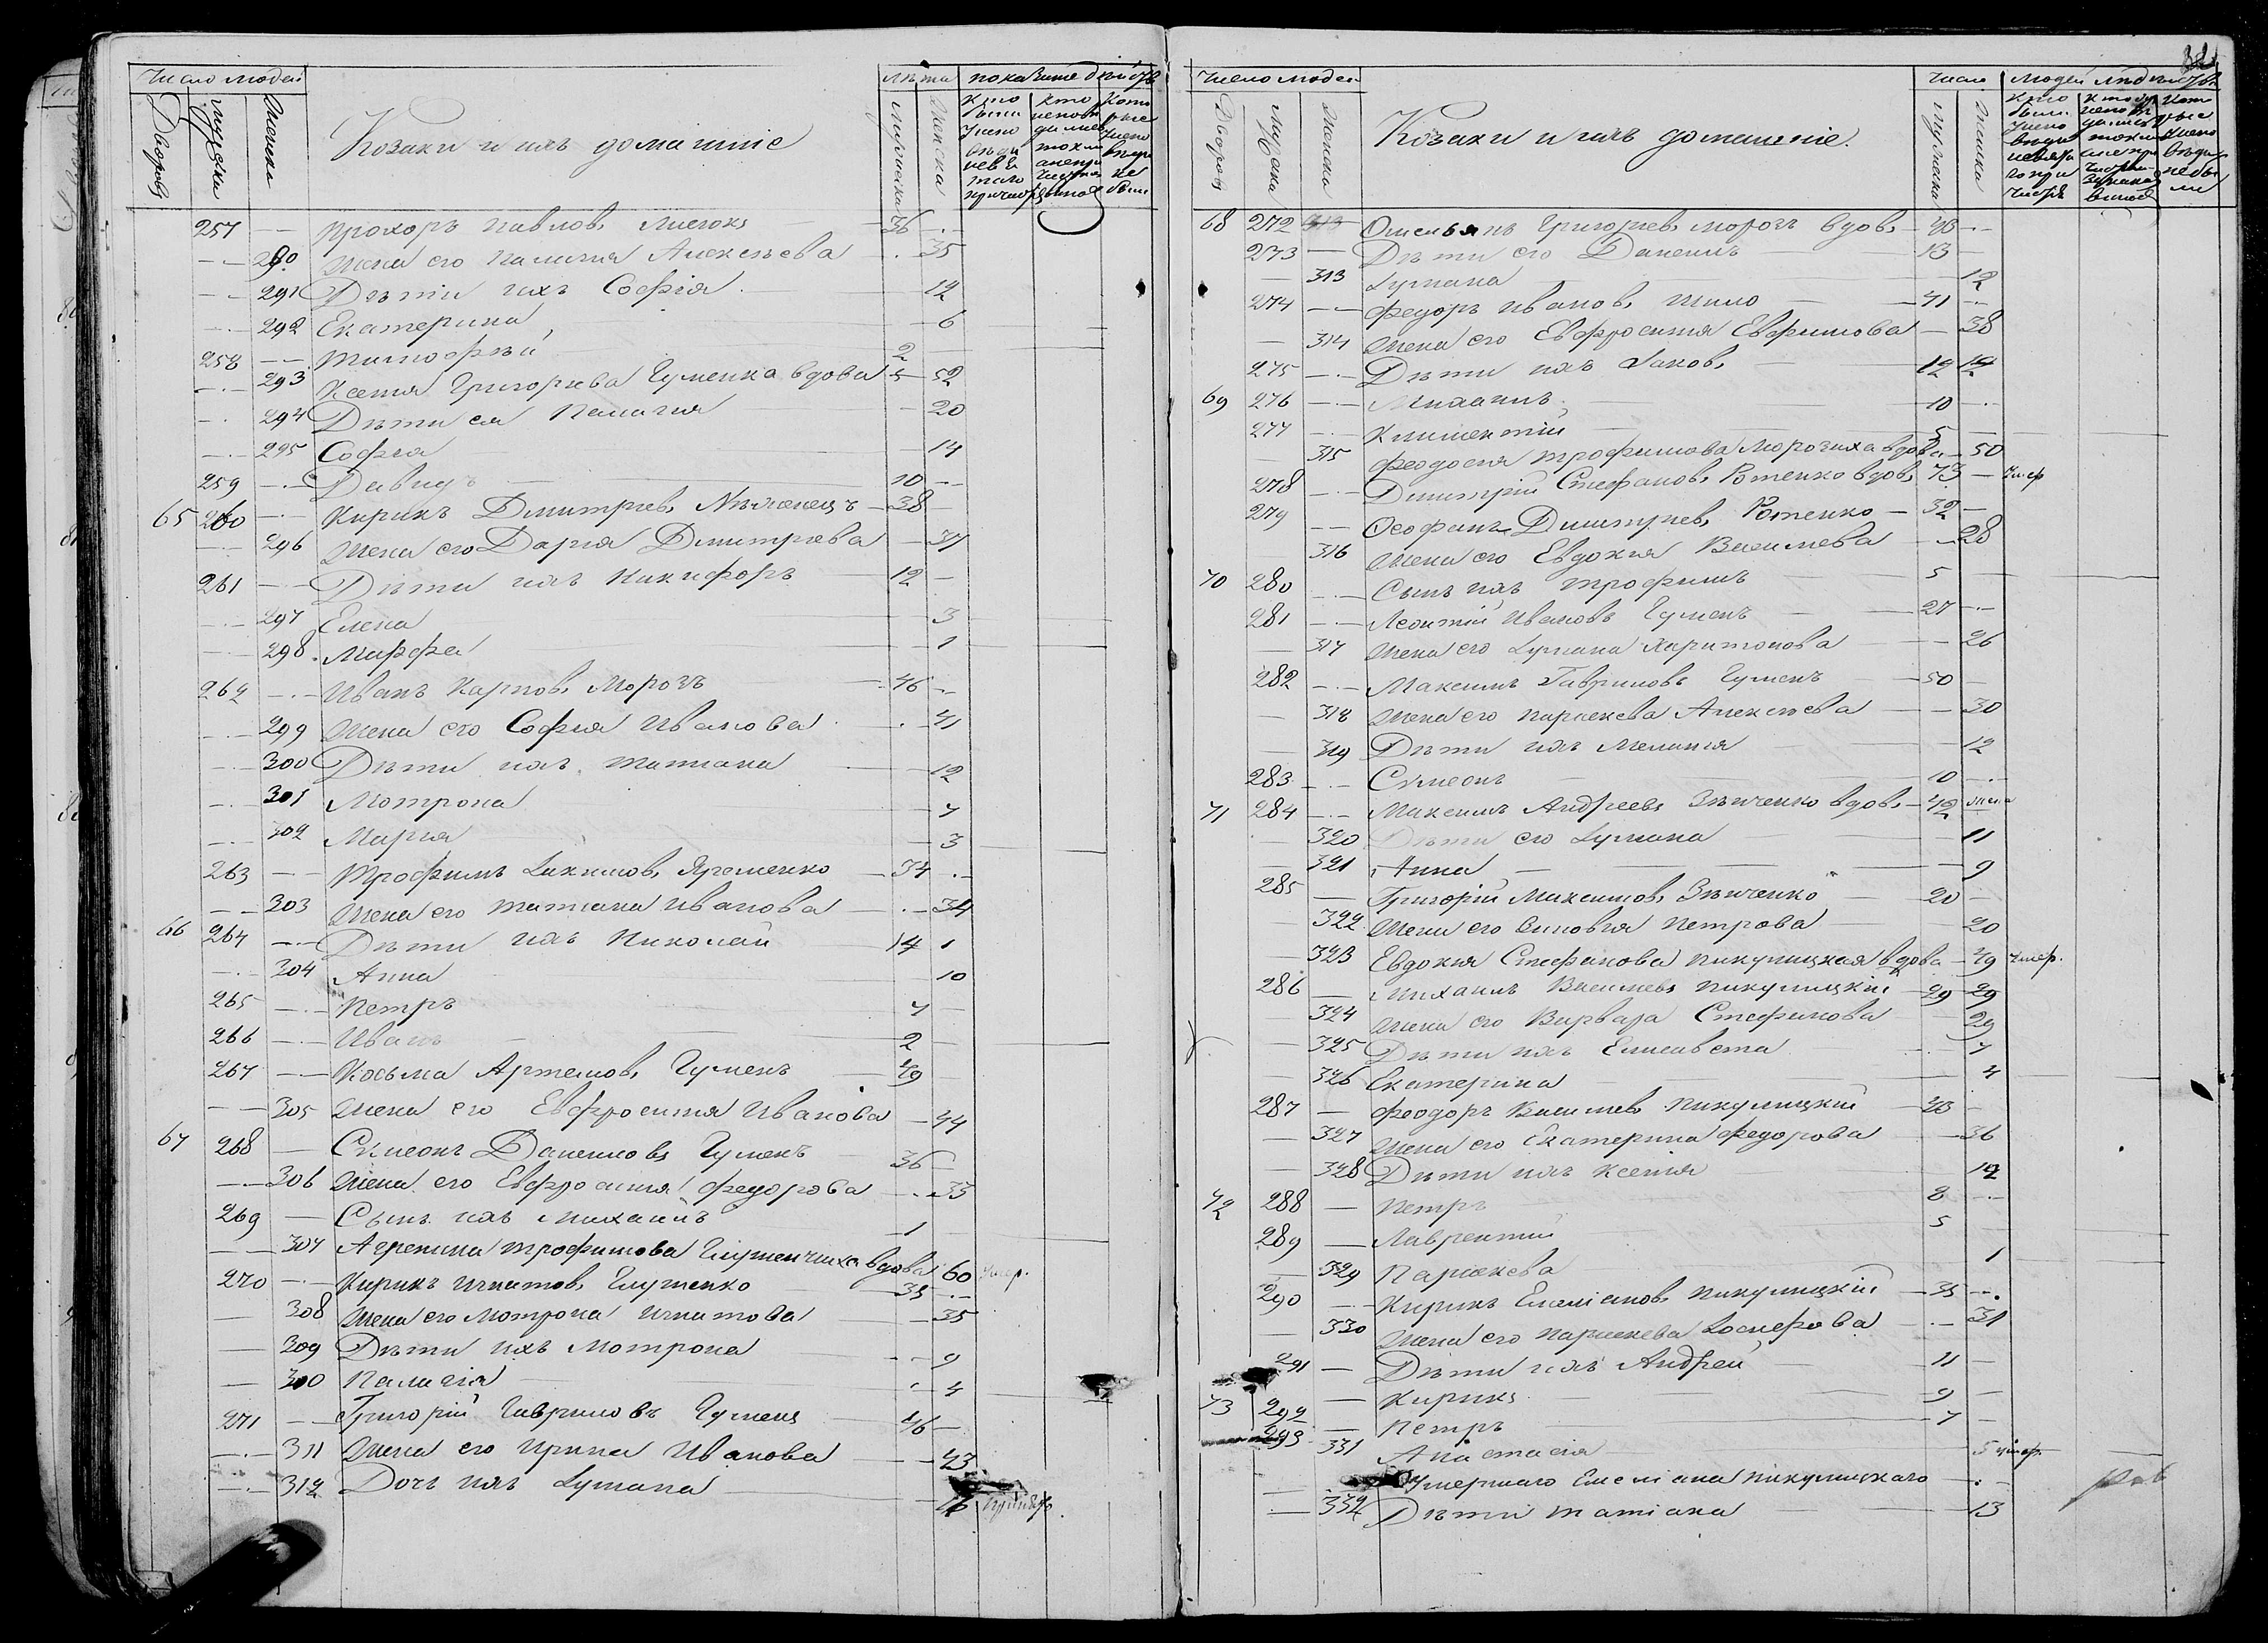 Число людей
Лѣта
показание дѣйств
Дворов
мужеска
женска
Козаки и ихъ домашніе
мужеска
женска
257 — Прохоръ Павловъ 36
290 жена его Пелагия Алексѣева 35
291 Дѣти ихъ София 12
292 Екатерина 6
258 — Тимофѣй 2
293 Ксения Григориева Гуменка вдова 52
294 Дѣти ея Пелагия 20
295 София 14
259 — Давидъ 10
65 260 — Кирикъ Дмитриев Нѣжинецъ 38
296 жена его Дария Дмитриева 37
261 — Дѣти ихъ Никифоръ 12
297 Елена 3
298 Марфа 1
262 — Иванъ Карповъ Морозъ 46
299 жена его София Иванова 41
300 Дѣти ихъ Татиана 12
301 Мотрона 7
302 Мария 3
263 — Трофимъ Иакимовъ Яременко 34
303 жена его Татиана Иванова 34
66 264 — Дѣти ихъ Николай 14 1
304 Анна 10
265 — Петръ 7
266 — Иванъ 2
267 — Косьма Артемовъ Гуменъ 49
305 жена его Евфросиния Иванова 44
67 268 — Симеонъ Даниловъ Гуменъ 36
306 жена его Евфросиния Федорова 33
269 — Сынъ ихъ Михаилъ 1
307 Агрепина Трофимова Глущенчиха вдова 60 умер.
270 — Кирикъ Игнатовъ Глущенко 35
308 жена его Мотрона Игнатова 35
309 Дѣти ихъ Мотрона 9
300 Пелагия 4
271 — Григорій Гавриловъ Гуменъ 46
311 жена его Ирина Иванова 43
312 Дочь ихъ Иулиана 16
82
Число людей
Число людей
Дворов
мужеска
женска
Козаки и ихъ домашніе.
мужеска
женска
68 272 313 Омельянъ Григориевъ Морозъ вдовъ 46
273 — Дѣти его Даниилъ 13
313 Иулиана 12
274 — Федоръ Ивановъ Шило 41
314 жена его Евфросиния Евфимова 38
275 — Дѣти ихъ Иаковъ 12
69 276 — Михаилъ 10
277 — Климентій 5
315 Феодосия Трофимова Морозиха вдова 50
278 — Дмитрій Стефановъ Ротенко вдовъ 73 умер
279 — Феофанъ Дмитриевъ Ротенко 32
316 жена его Евдокия Васильева 28
70 280 — Сынъ ихъ Трофимъ 5
281 — Леонтій Ивановъ Гуменъ 27
317 жена его Иулиана Харитонова 26
282 — Максимъ Гавриловъ Гуменъ 50
318 жена его Параскева Алексѣева 30
319 Дѣти ихъ Мелания 12
283 — Симеонъ 10
71 284 — Максимъ Андреевъ Зѣнченко вдовъ 42
320 Дѣти его Иулиана 11
321 Анна 9
285 — Григорій Максимовъ Зѣнченко 20
322 жена его Зиновия Петрова 20
323 Евдокия Стефанова Пикулицкая вдова 49 умер.
286 — Михаилъ Васильевъ Пикулицкій 29 29
324 жена его Варвара Стефанова 29
325 Дѣти ихъ Елисавета 7
326 Екатерина 4
287 — Феодоръ Васильевъ Пикулицкій 43
327 жена его Екатерина Федорова 36
328 Дѣти ихъ Ксения 12
72 288 — Петръ 8
289 — Лаврентий 5
329 Параскева 1
290 — Кирикъ Емелиановъ Пикулицкій 35
330 жена его Параскева Иосифова 31
291 — Дѣти ихъ Андрей 11
73 292 — Кирикъ 9
293 — Петръ 7
331 Анастасия 5 умер.
Умершаго Емелиана Пикулицкаго
332 Дѣти Татиана 13